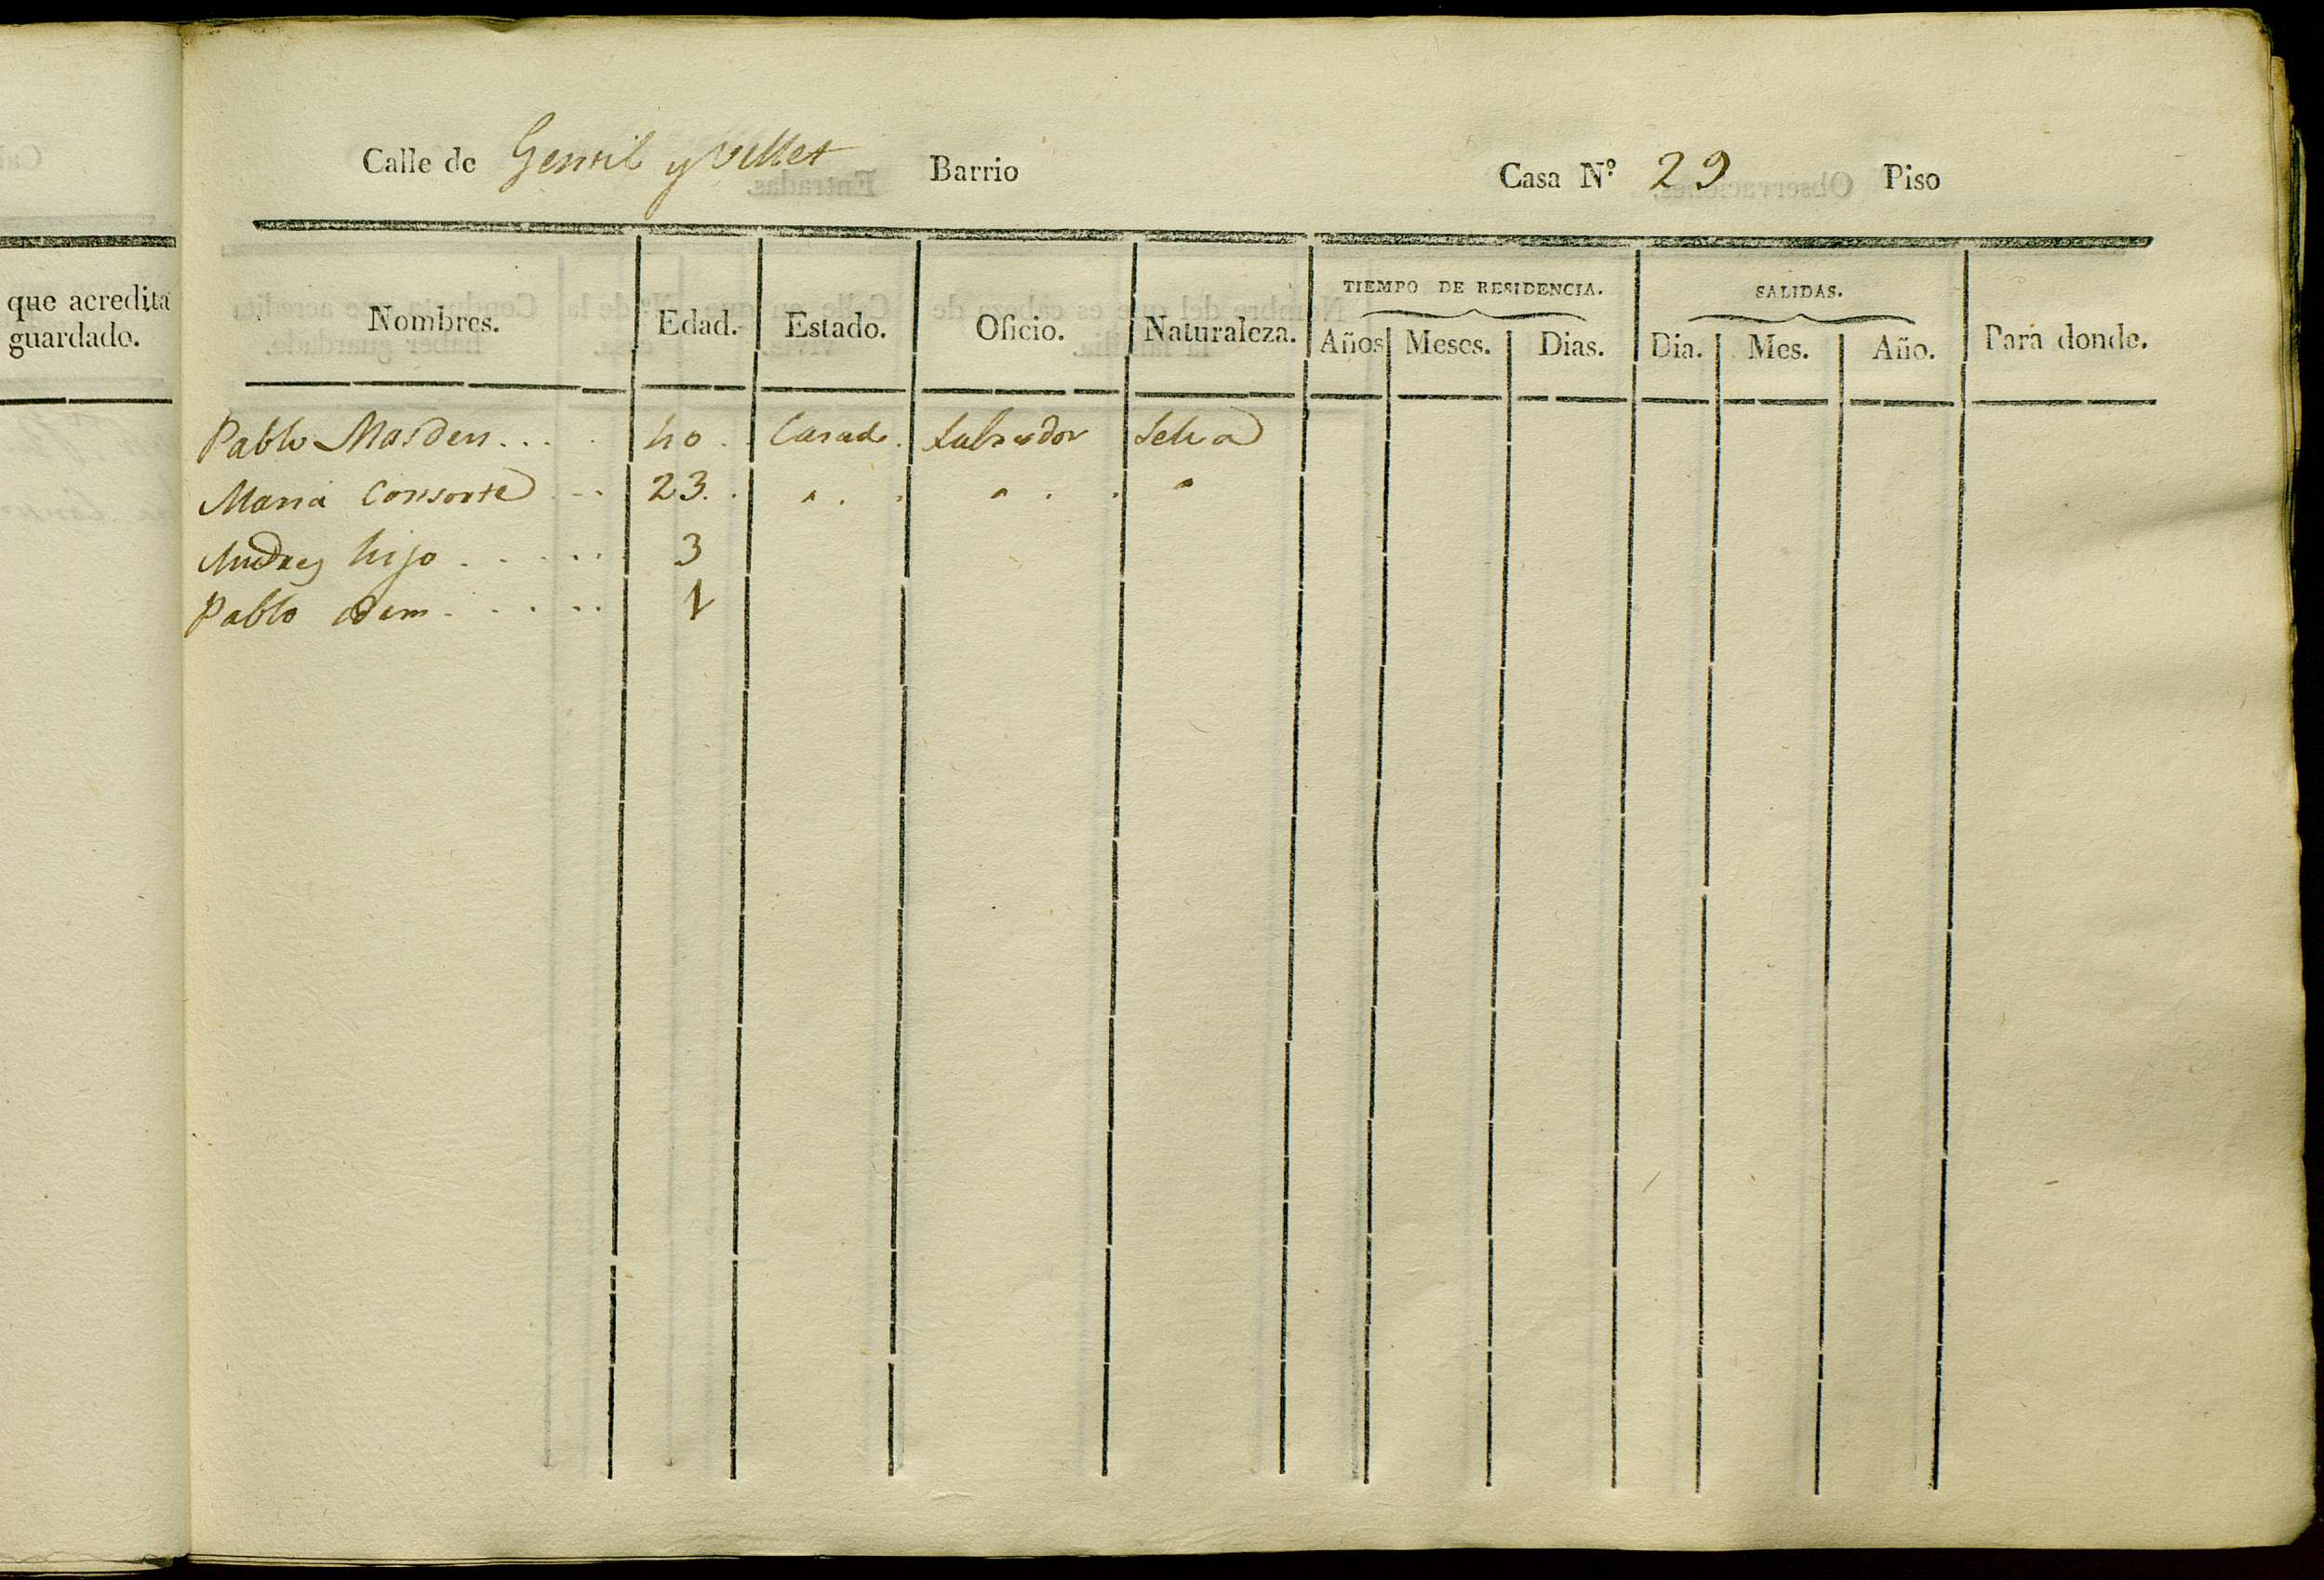 que acredita
guardado.
Calle de Gentil y Vellet Barrio Casa Nº 29 Piso
Nombres. Edad. Estado. Oficio. Naturaleza. TIEMPO DE RESIDENCIA. SALIDAS. Para donde.
Años Meses. Dias. Dia. Mes. Año.
Pablo Masdeu.... 40. Casado. Labrador Selva
Maria Consorte ... 23. " . . " . . "
Andres hijo ..... 3
Pablo idem ..... 1